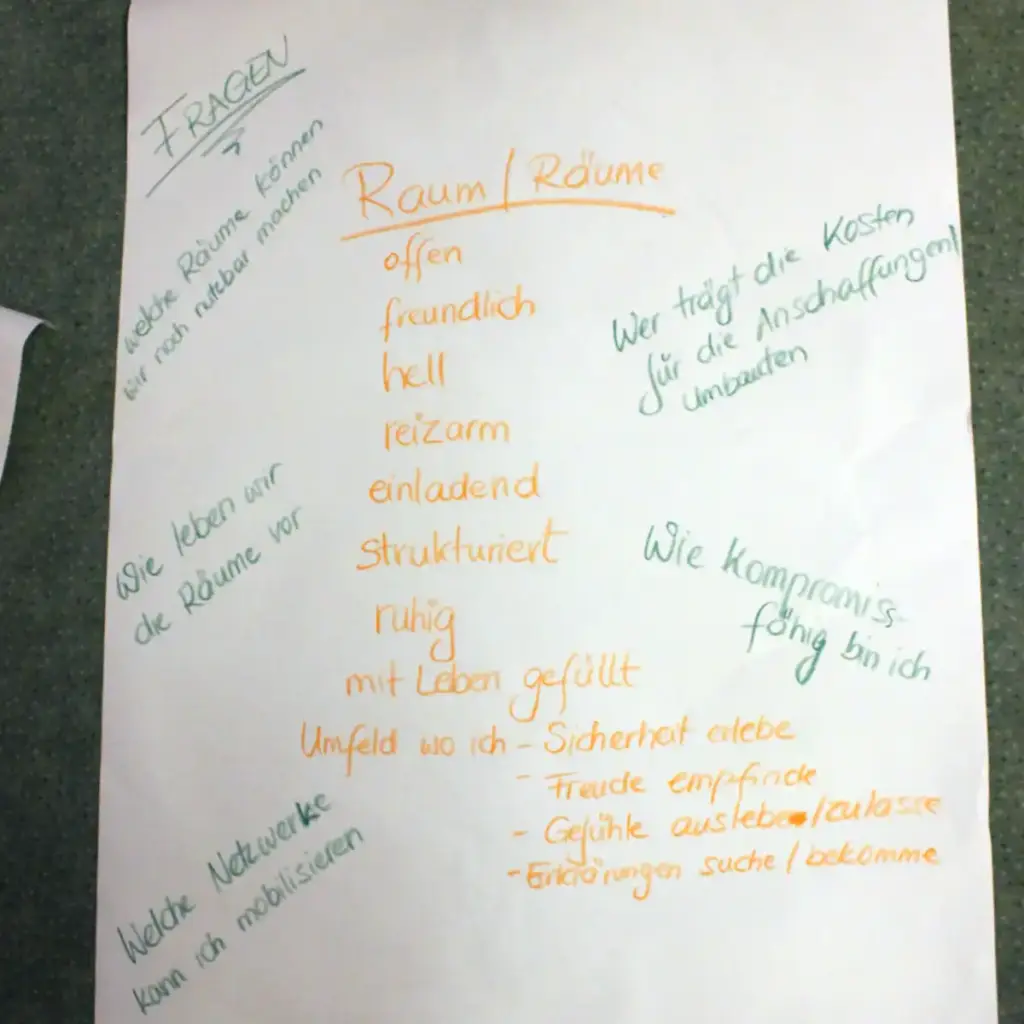 FRAGEN
welche Räume können
wir noch nutzbar machen
Wie leben wir
die Räume vor
Welche Netzwerke
kann ich mobilisieren
Raum / Räume
offen
freundlich
hell
reizarm
einladend
strukturiert
ruhig
mit Leben gefüllt
Umfeld wo ich - Sicherheit erlebe
- Freude empfinde
- Gefühle auslebe/zulasse
- Erklärungen suche / bekomme
Wer trägt die Kosten
für die Anschaffungen/
Umbauten
Wie Kompromiss-
fähig bin ich